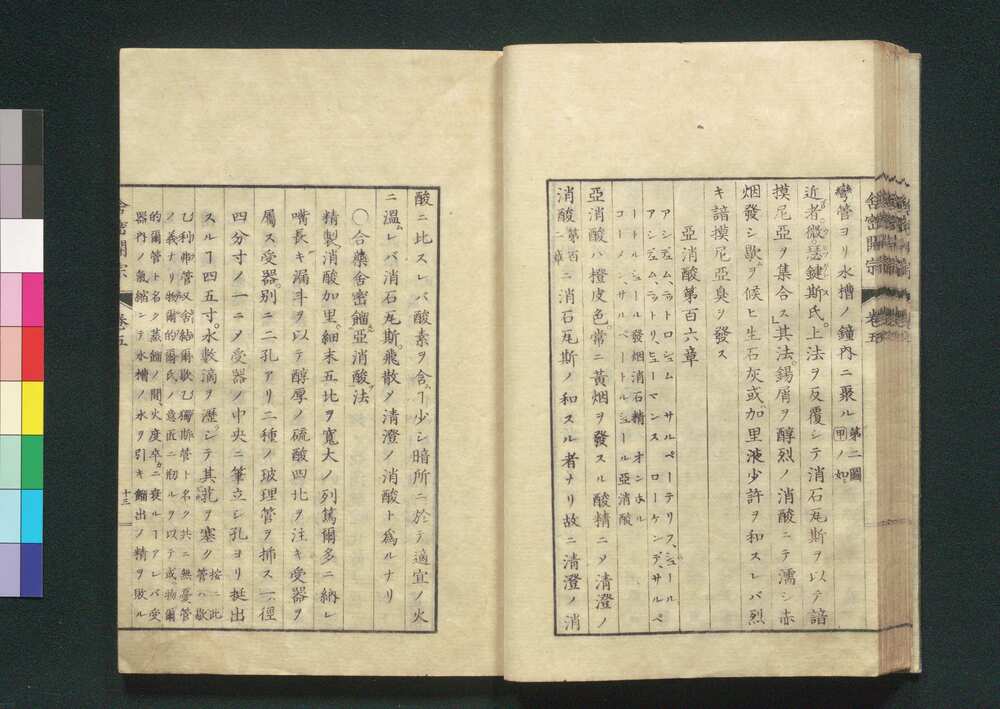 舎密開宗 卷五
彎管ヨリ水槽ノ鐘内ニ聚ル第二圖甲ノ如シ
近者微瑟鍵斯氏上法ヲ反覆シテ消石瓦斯ヲ以テ諳
摸尼亞ヲ集合ス其法錫屑ヲ醇烈ノ消酸ニテ濡シ赤
烟發シ歇ム候ヒ生石灰或加里液少許ヲ和スレバ烈
キ諳摸尼亞臭ヲ發ス
亞消酸第百六章
アシデュム、ニトロシュム サルペーテリフ、ジュール
アシデュム、ニトリ、ヒューマンス ローケンデ、サルペ
ートルシュール發烟消石精 オンホル
コーメン、サルペートルシュール亞消酸
亞消酸ハ橙皮色常ニ黃烟ヲ發スル酸精ニメ清澄ノ
消酸第百二章ニ消石瓦斯ノ和スル者ナリ故ニ清澄ノ消
酸ニ比スレバ酸素ヲ含ムヿ少シ暗所ニ於テ適宜ノ火
ニ溫ムレバ消石瓦斯飛散メ清澄ノ消酸ト爲ルナリ
○合藥舎密餾亞消酸法
精製消酸加里細末五比ヲ寬大ノ列篤爾多ニ納レ
嘴長キ漏斗ヲ以テ醇厚ノ硫酸四比ヲ注キ受器ヲ
屬ス受器別ニ二孔アリ二種ノ玻理管ヲ挿ス一徑
四分寸ノ一ニメ受器ノ中央ニ筆立シ孔ヨリ挺出
スルヿ四五寸水數滴ヲ瀝シテ其孔ヲ塞ク按ニ此管ハ歇
ム利弗管又舎結爾歇ム獨斯管ト名ク共ニ無憂管
ノ義ナリ物爾的爾氏ノ意匠ニ刱ルヲ以テ或物爾
的爾管ト名ク蒸餾ノ間火度卒カニ衰ルヿアレバ受
器内ノ氣縮シテ水槽ノ水ヲ引キ餾出ノ精ヲ敗ル
舎密開宗 卷五 十三